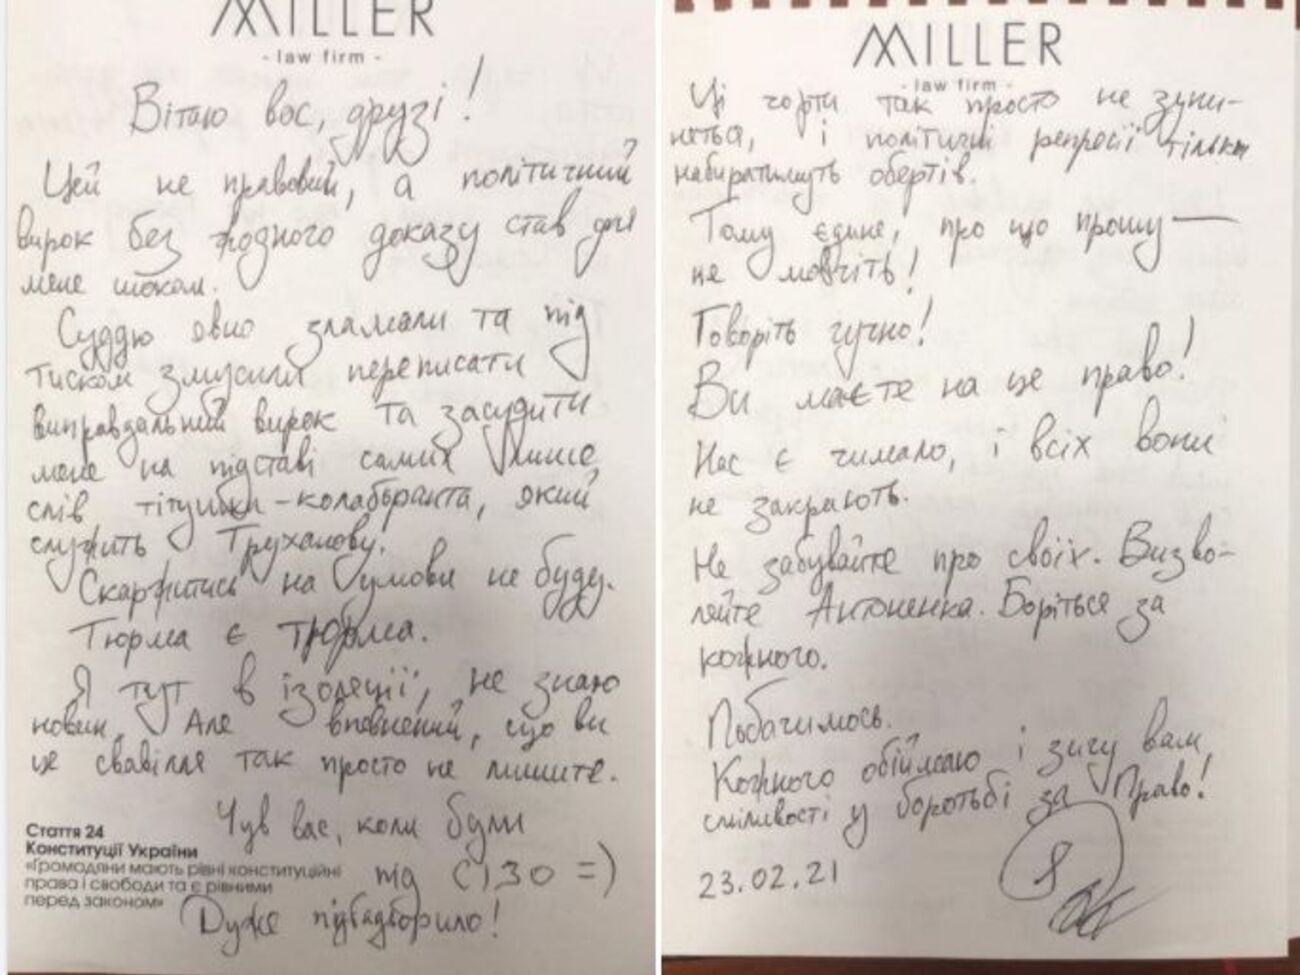 MILLER
- law firm -
Вітаю вас, друзі!
Цей не правовий, а політичний
вирок без жодного доказу став для
мене шоком.
Суддю явно зламали та під
тиском змусили переписати
виправдальний вирок та засудити
мене на підставі самих лише
слів тітушки-колаборанта, який
служить Труханову.
Скаржитись на умови не буду.
Тюрма є тюрма.
Я тут в ізоляції, не знаю
новин. Але впевнений, що ви
це свавілля так просто не лишите.
Чув вас, коли були
під СІЗО =)
Дуже підбадьорило!
Стаття 24
Конституції України
«Громадяни мають рівні конституційні
права і свободи та є рівними
перед законом»
MILLER
- law firm -
Ці чорти так просто не зупи-
няться, і політичні репресії тільки
набиратимуть обертів.
Тому єдине, про що прошу —
не мовчіть!
Говоріть гучно!
Ви маєте на це право!
Нас є чимало, і всіх вони
не закриють.
Не забувайте про своїх. Визво-
ляйте Антоненка. Боріться за
кожного.
Побачимось.
Кожного обіймаю і зичу вам
сміливості у боротьбі за Право!
23.02.21